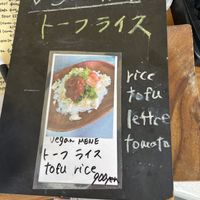 トーフライス
vegan MENE
トーフ ライス
tofu rice
900yen
rice
tofu
lettce
tomato